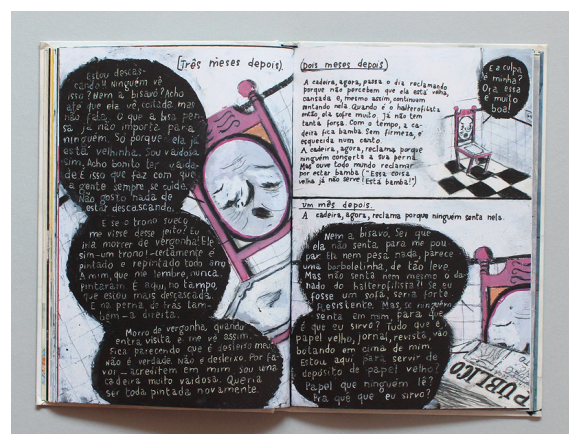 (Três meses depois)
Estou descas-
cando!! Ninguém vê
isso? Nem a bisavó? Acho
até que ela vê, coitada, mas
não fala. O que a bisa pen-
sa já não importa para
ninguém. Só porque ela já
está velhinha. Sou vaidosa
sim. Acho bonito ter vaida-
de. É isso que faz com que
a gente sempre se cuide.
Não gosto nada de
estar descascando.
E se o trono sueco
me visse desse jeito? Eu
iria morrer de vergonha! Ele
sim-um trono!-certamente é
pintado e repintado todo ano.
A mim, que me lembre, nunca.
Pintaram. E aqui, no tampo,
que estou mais descascada.
E na perna de trás tam-
bém-a direita.
Morro de vergonha, quando
entra visita e me vê assim.
Fica parecendo que é desleixo meu.
Não é verdade. Não é desleixo. Por fa-
vor-acreditem em mim sou uma
cadeira muito vaidosa. Queria
ser toda pintada novamente.
(Dois meses depois)
A cadeira, agora, passa o dia reclamando
porque não percebem que ela está velha,
cansada e, mesmo assim, continuem
sentando nela. Quando é o halterofilista
então, ela sofre muito. Já não tem
tanta força. Com o tempo, a ca-
deira fica bamba. Sem firmeza, é
esquecida num canto.
A cadeira, agora, reclama porque
ninguém conserta a sua perna.
Mas ouve todo mundo reclamar
por estar bamba ("Essa coisa
velha já não serve! Está bamba!")
E a culpa
é minha?
Ora essa
é muito
boa!
Um mês depois.
A cadeira, agora, reclama porque ninguém senta nela.
Nem a bisavó. Sei que
ela não senta para me pou
par. Ela nem pesa nada, parece
uma borboletinha, de tão leve.
Mas não senta nem mesmo o da-
nado do halterofilista!! Se eu
fosse um sofá, seria forte
Resistente. Mas, se ninguém
senta em mim, para que
é que eu sirvo? Tudo que é
papel velho, jornal, revista, vão
botando em cima de mim.
Estou aqui para servir de
depósito de papel velho?
Papel que ninguém lê?
Pra que que eu sirvo?
PÚBLICO